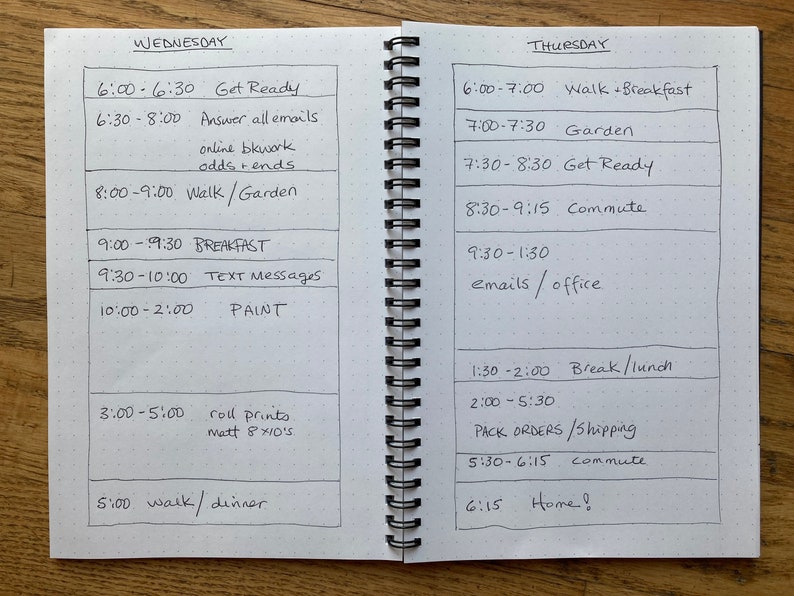 WEDNESDAY
6:00 - 6:30 Get Ready
6:30 - 8:00 Answer all emails
online bkwork
odds + ends
8:00 - 9:00 Walk / Garden
9:00 - 9:30 BREAKFAST
9:30 - 10:00 TEXT Messages
10:00 - 2:00 PAINT
3:00 - 5:00 roll prints
matt 8x10's
5:00 walk / dinner
THURSDAY
6:00 - 7:00 Walk + Breakfast
7:00 - 7:30 Garden
7:30 - 8:30 Get Ready
8:30 - 9:15 Commute
9:30 - 1:30
emails / office
1:30 - 2:00 Break / lunch
2:00 - 5:30
PACK ORDERS / Shipping
5:30 - 6:15 commute
6:15 Home!